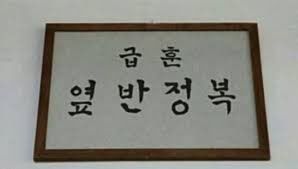 급훈
옆반정복